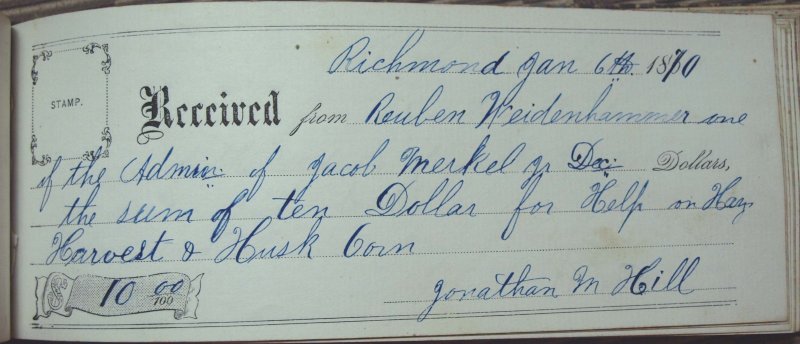 Richmond Jan 6th. 1870
STAMP.
Received from Reuben Weidenhammer one
of the Admin: of Jacob Merkel Jr Dec: Dollars,
the sum of ten Dollar for Help on Hay
Harvest & Husk Corn
10 00/100
Jonathan M Hill